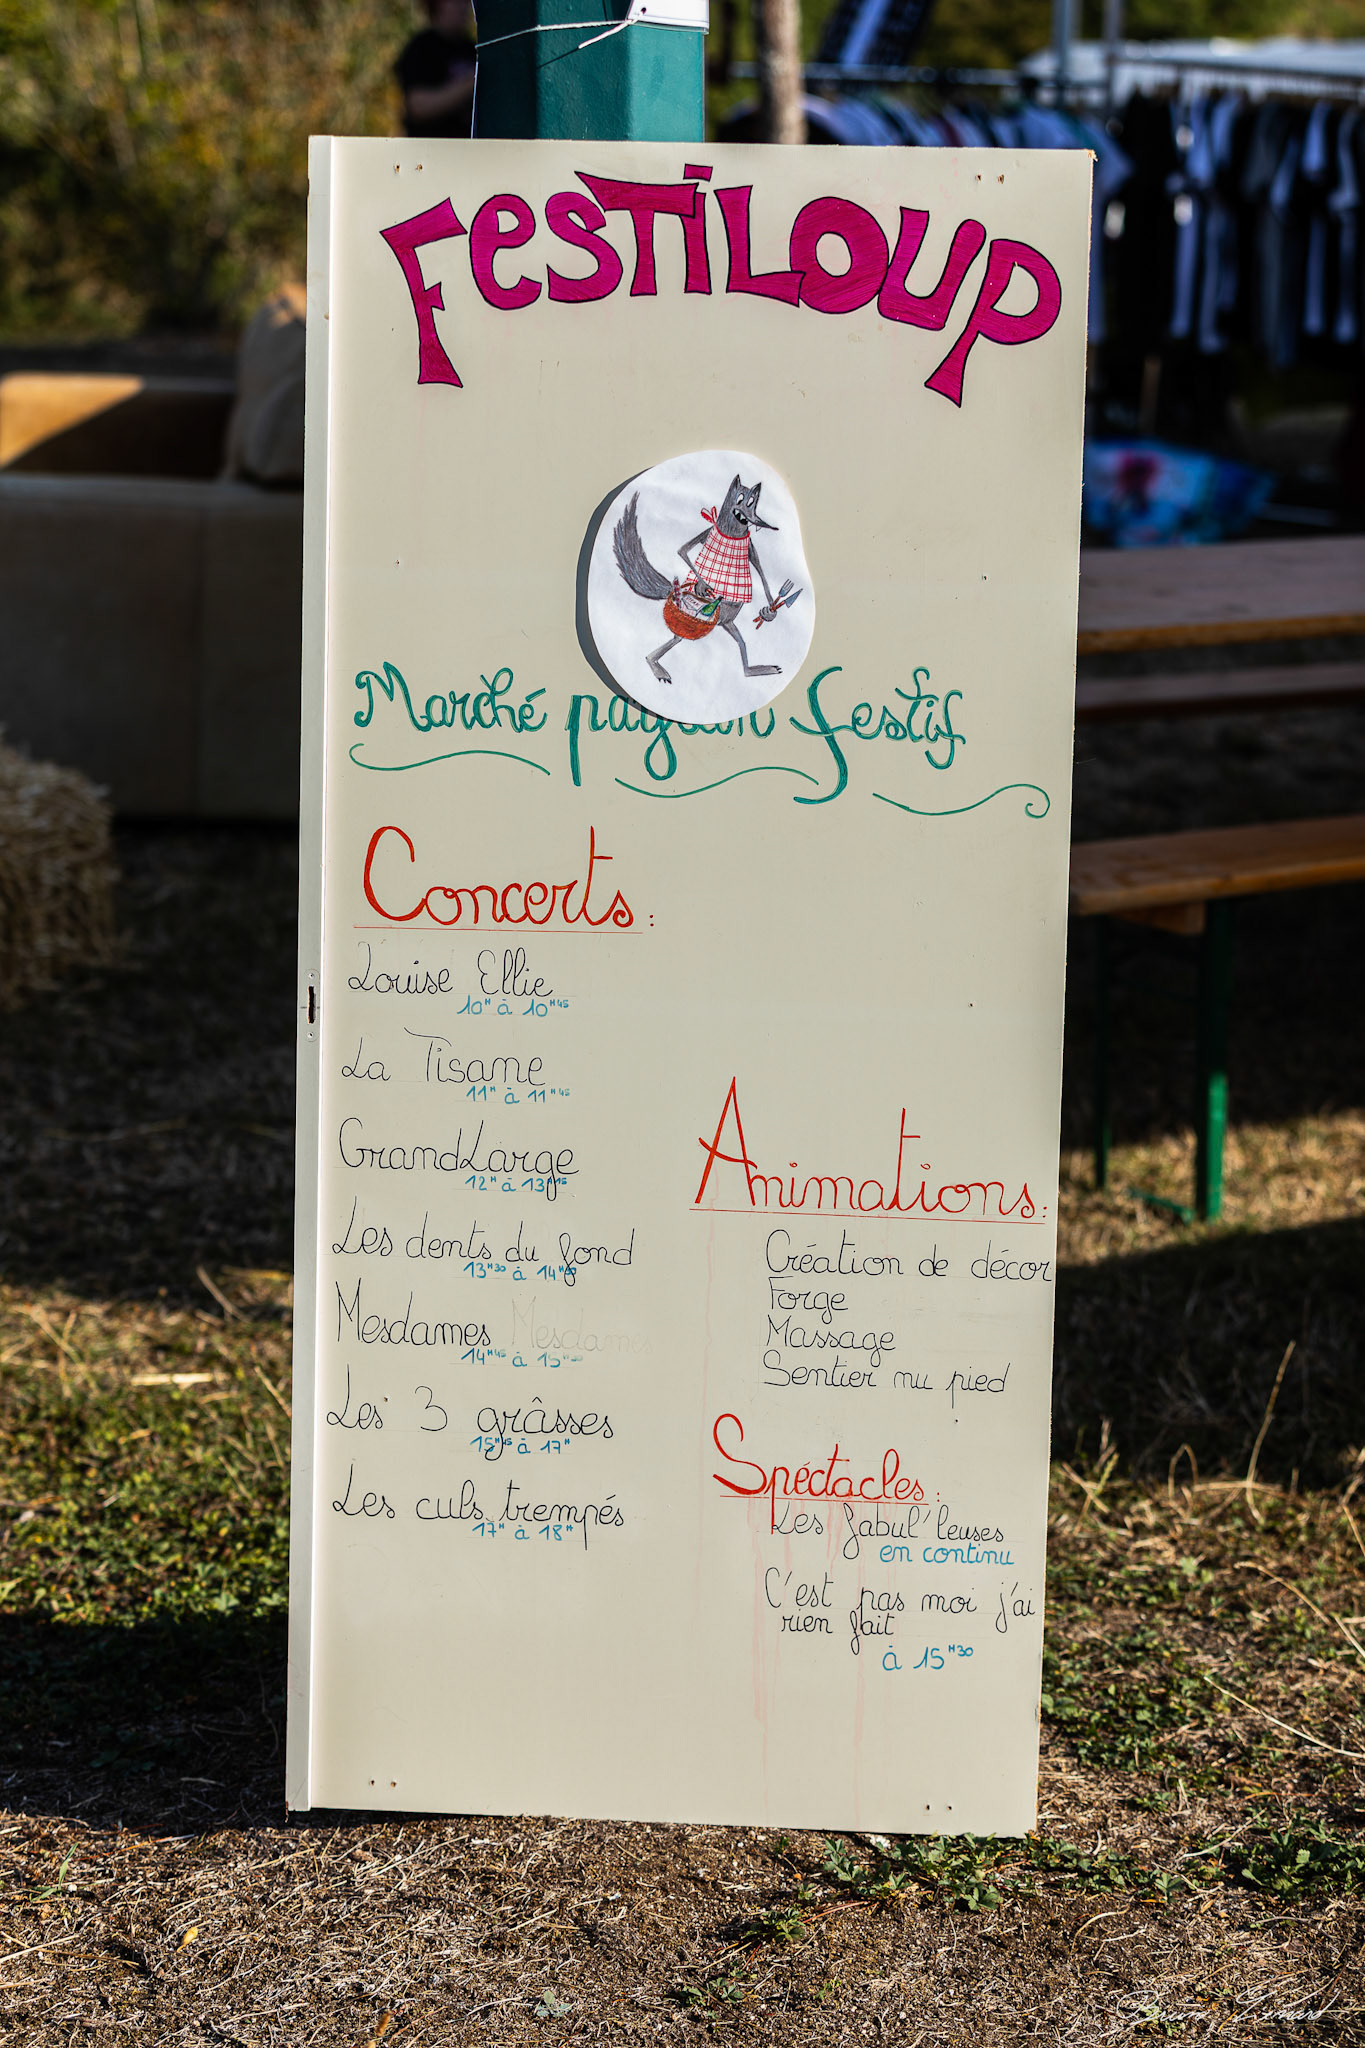 FESTILOUP
Marché paysan festif
Concerts :
Louise Ellie
10H à 10H45
La Tisane
11H à 11H45
GrandLarge
12H à 13H15
Les dents du fond
13H30 à 14H30
Mesdames Mesdames
14H45 à 15H30
Les 3 grâsses
15H45 à 17H
Les culs trempés
17H à 18H
Animations :
Création de décor
Forge
Massage
Sentier nu pied
Spéctacles :
Les fabul'leuses
en continu
C'est pas moi j'ai
rien fait
à 15H30